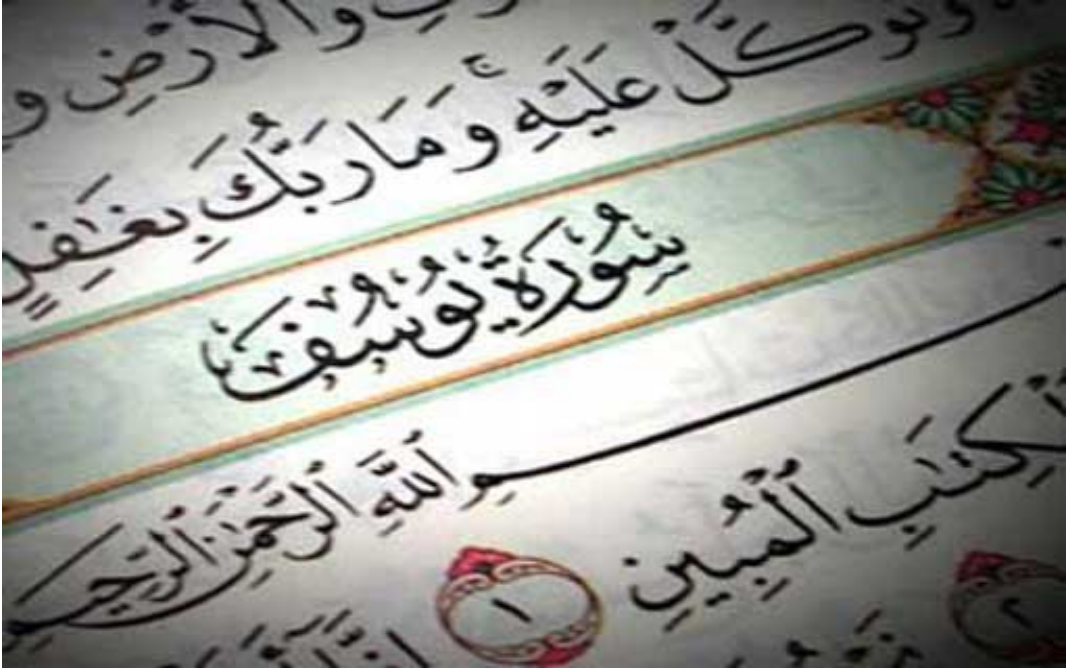 وَالْأَرْضِ
وَتَوَكَّلْ عَلَيْهِ ۚ وَمَا رَبُّكَ بِغَٰفِلٍ
سُورَةُ يُوسُفَ
بِسْمِ ٱللَّهِ ٱلرَّحْمَٰنِ ٱلرَّحِيمِ
ٱلْكِتَٰبِ ٱلْمُبِينِ ١ إِنَّآ
٢ نَحْنُ